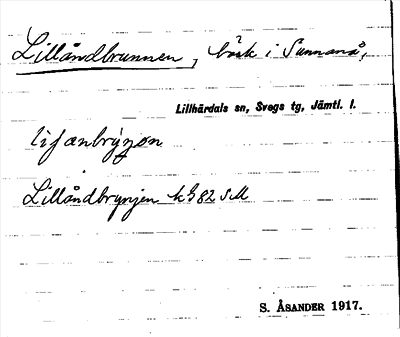 Lillåndbrunnen, bäck i Sunnanå,
Lillhärdals sn, Svegs tg, Jämtl. l.
Lillåndbrynjen kg 82 SM
S. ÅSANDER 1917.